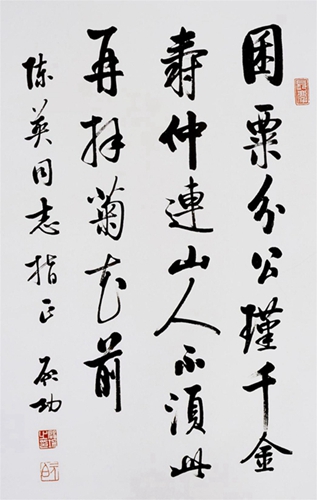 囷粟分公瑾千金
壽仲連山人不須此
再拜菊花前
陈英同志指正 启功